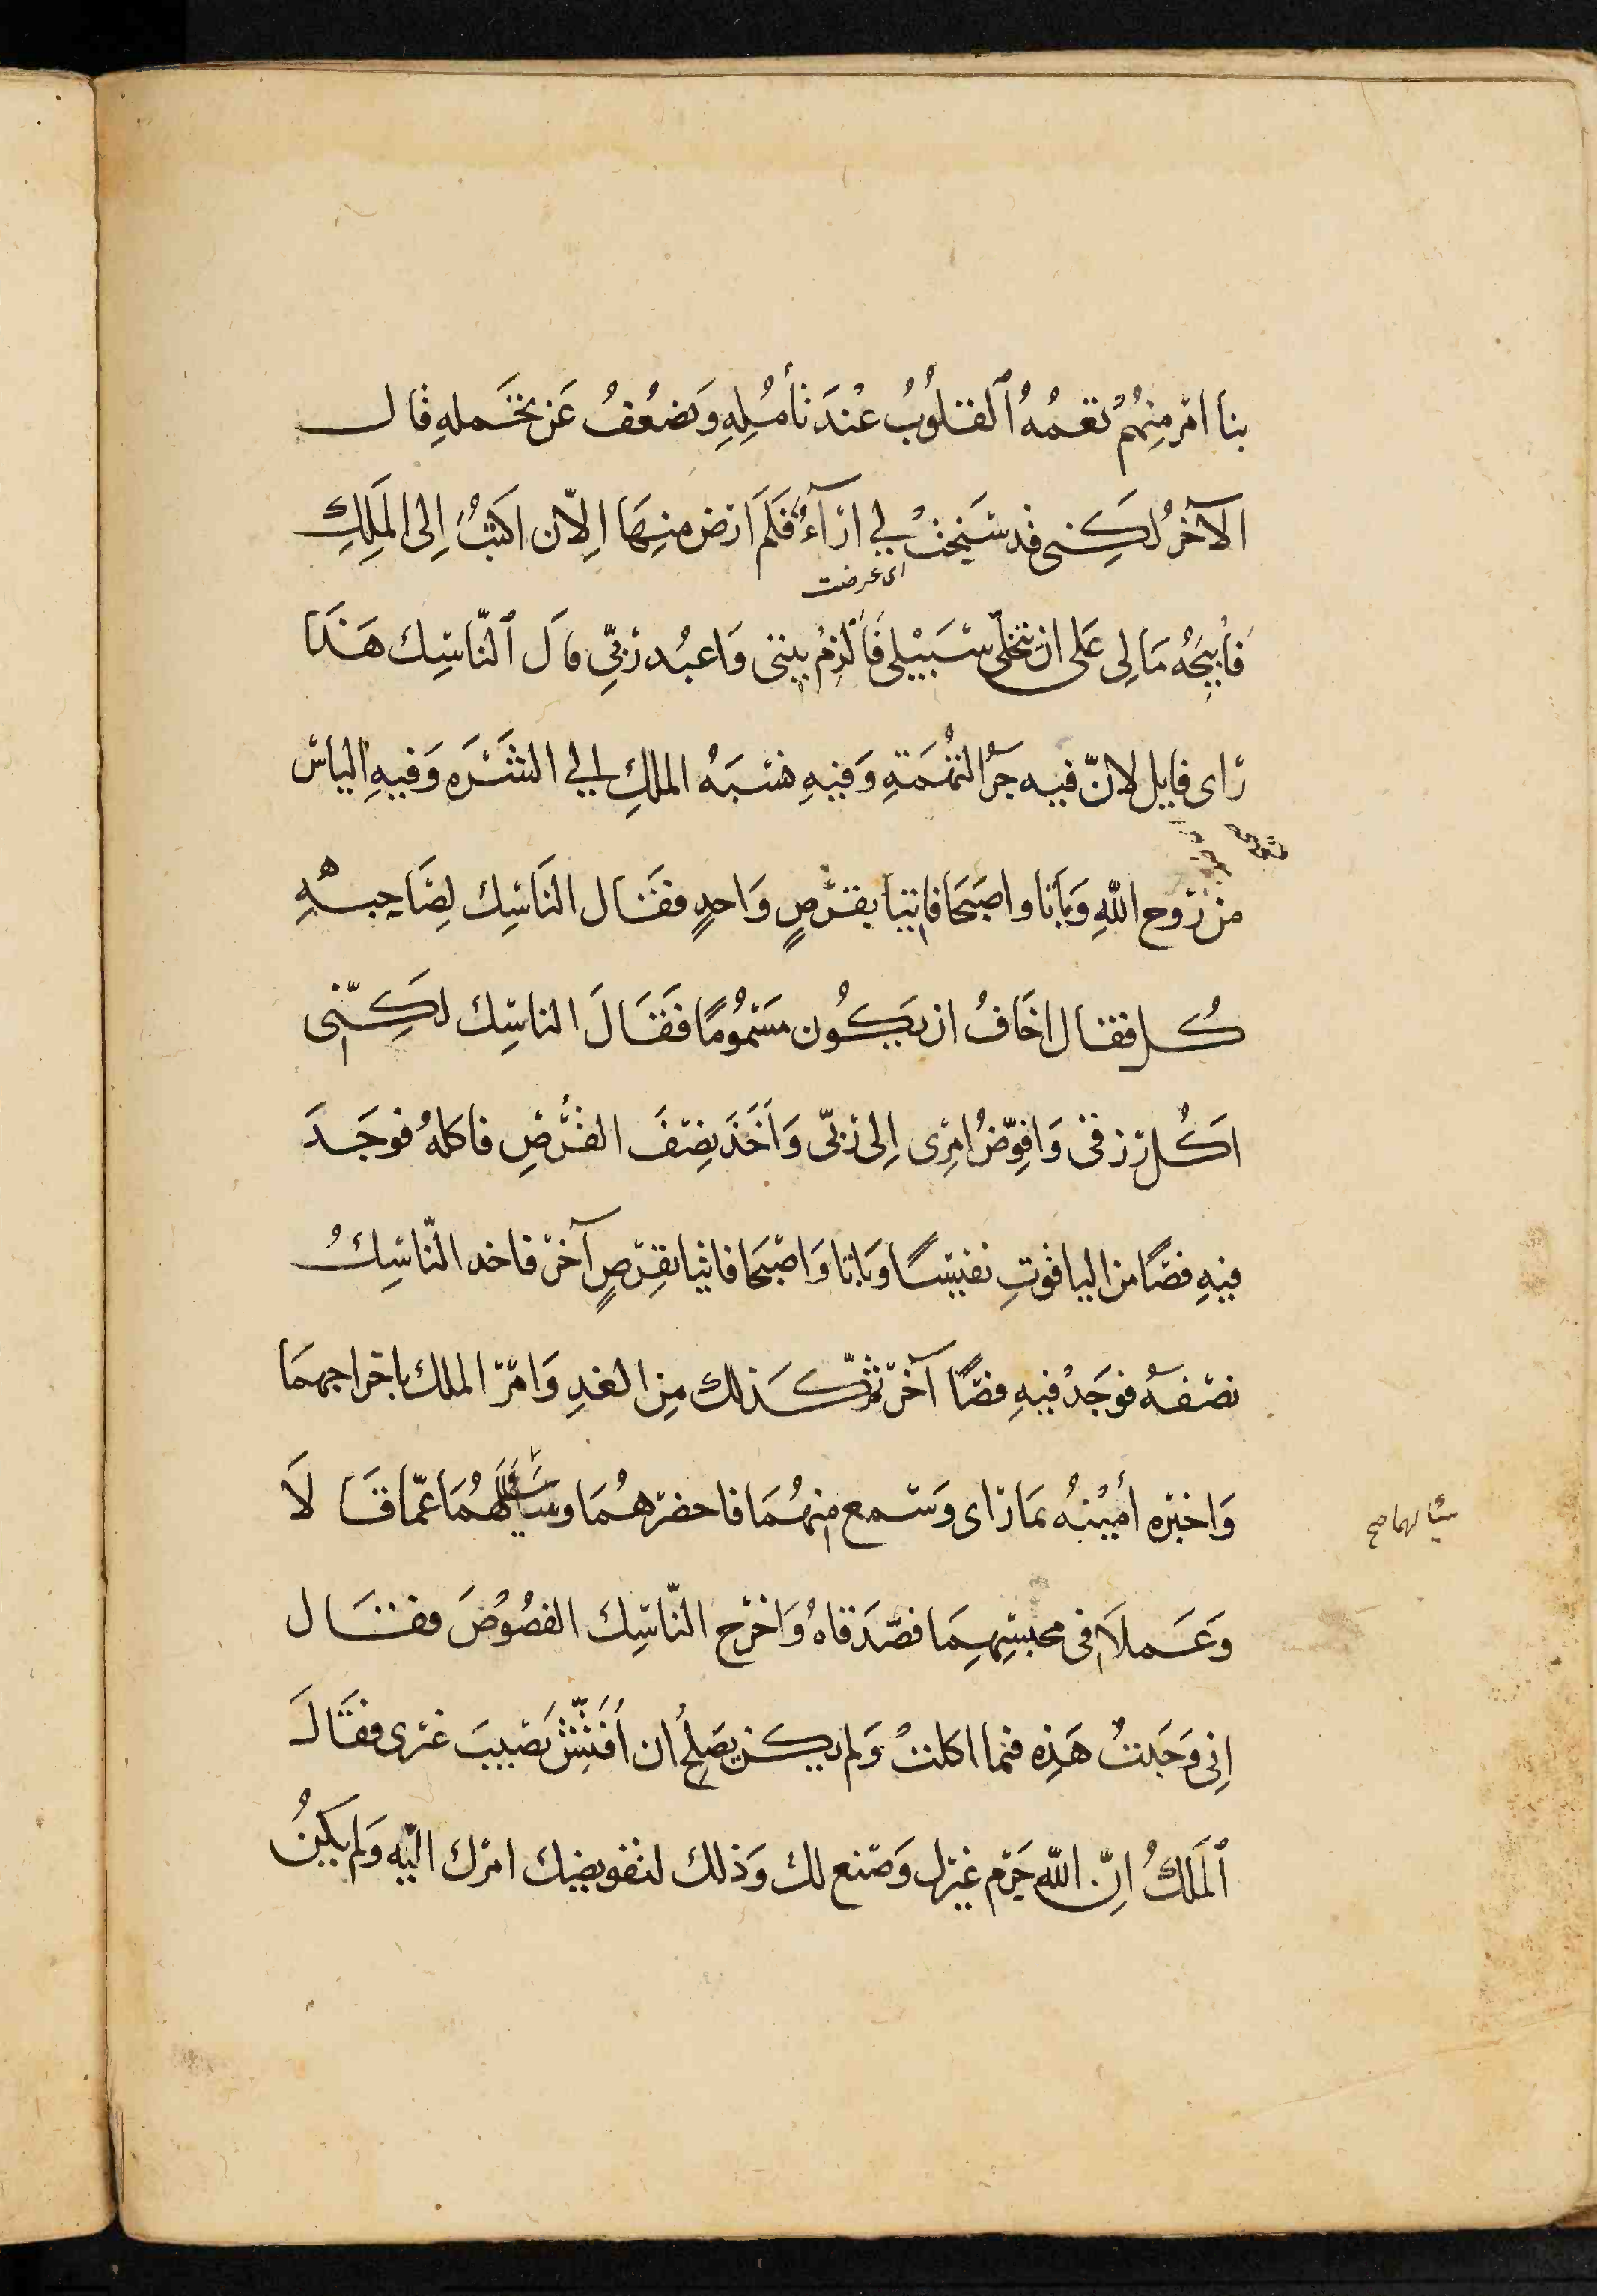 بنا امْر مِنهُمْ تعمُهُ ٱلقلُوبُ عنْدَ تأمُّلِهِ وَتضعُفُ عَن تحَمله قال
الآخرُ لكِنى قد سَنَحَتْ لي ارْآءٌ فَلَم ارْض منِهَا اِلّا ان اكتبُ اِلى المَلِكِ
اى عرضت
فأبيحُهُ مَا لِى عَلى ان تخلّى سَبيْلى فَألزمُ بيتى وَاعبُد رَبّى قالَ ٱلنّاسِك هَذا
رَاى فايل لانّ فيه جَرُّ التُّهمَةِ وَفيهِ نسْبَهُ الملكِ الي الشَّرَه وَفيهِ الياسُ
من رَوح اللهِ وَبَاتا واصبَحَا فاتيا بقرْصٍ وَاحدٍ فقال النَاسِك لِصَاحِبِهِ
كُل فقال اخَافُ ان يكُون مَسْمُومًا فَقَالَ الناسِك لكِنّى
اكُل رزقى وَافوِّضُ امرِى اِلى رَبّى وَاَخَذَ نِصْفَ القُرْصِ فاكلهُ فوجَدَ
فيهِ فصًّا من الياقُوتِ نفيسًا وَباتا وَاصْبَحَا فاتيا بقرْصٍ آخرْ فاخد النّاسِكُ
نصْفهُ فوَجَدْ فيهِ فصًّا آخرْ ثمّ كَذلك مِن الغدِ وَامَرَ الملك باخراجهمَا
وَاخبَره أميْنهُ بمَا رَاى وَسَمع منهُمَا فاحضرَهُمَا وسَألَهُمَا عمّا قَالَا
سألهما صح
وَعَملَا فى محبسِهِمَا فصَّدَقاهُ وَاخرَج النّاسِك الفصُوصَ فقال
اِنى وَجَدتُ هَذِه فيما اكلتْ وَلم يكن يصَلحُ ان أفَتّشَ نصَيبَ غيرى فقَالَ
ٱلمَلكُ اِنّ اللهَ حَرَم غيرك وَصَنع لك وَذلك لتفويضِك امرك اليْهِ وَلم يكنْ